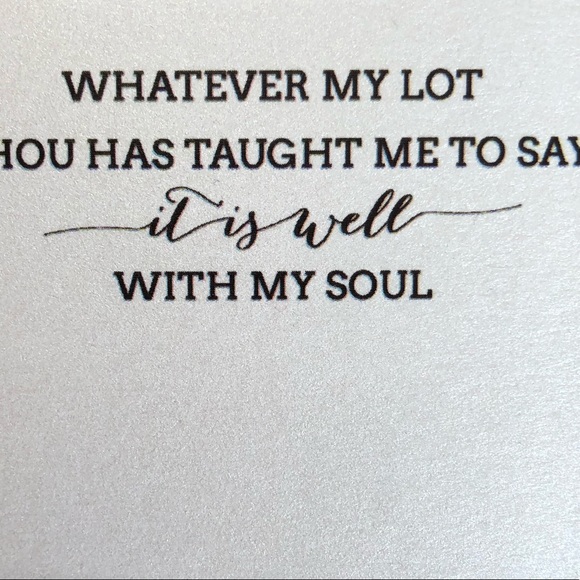 WHATEVER MY LOT
HOU HAS TAUGHT ME TO SAY
it is well
WITH MY SOUL